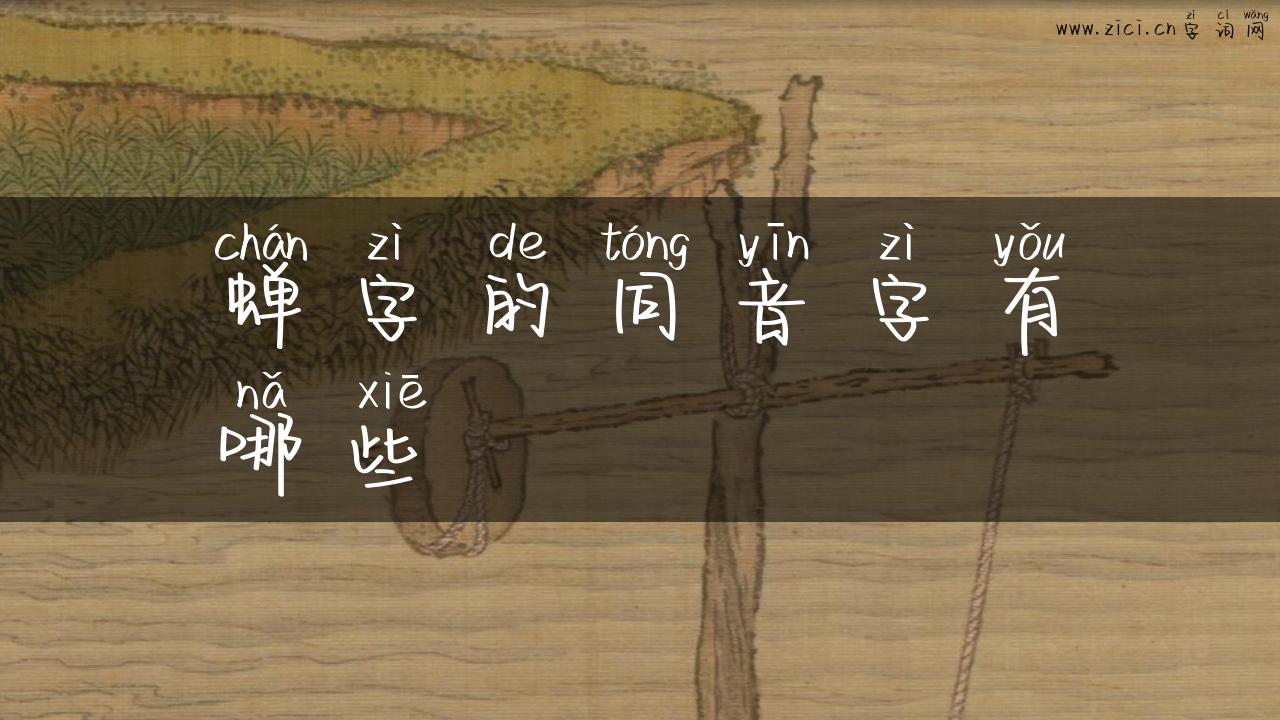 zì cí wǎng
www.zici.cn 字 词 网
chán zì de tóng yīn zì yǒu
蝉 字 的 同 音 字 有
nǎ xiē
哪 些